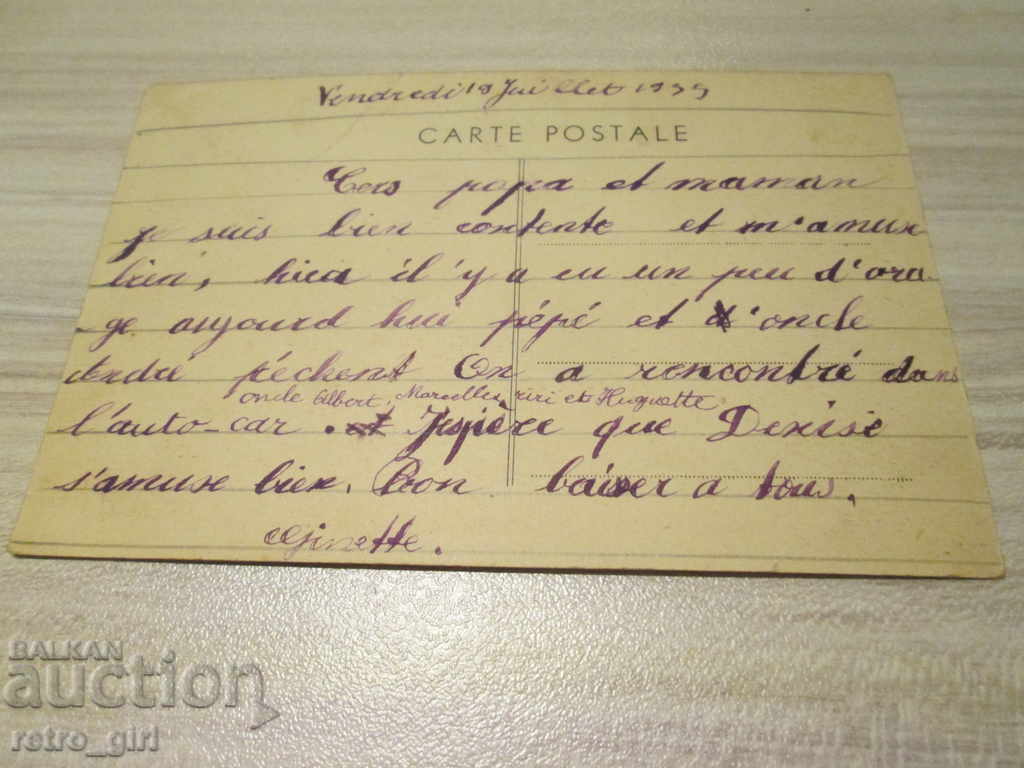 Vendredi 18 Juillet 1939
CARTE POSTALE
papa et maman
je suis bien contente et m'amuse
bien, hier il'y a eu un peu d'ora
ge aujourd hui pépé et l'oncle
André pêchent On a rencontré dans
oncle Albert, Marcelle, riri et Huguette
l'auto-car. et Jespère que Denise
s'amuse bien. Bon baiser a tous.
Ginette.
BALKAN
auction
retro_girl